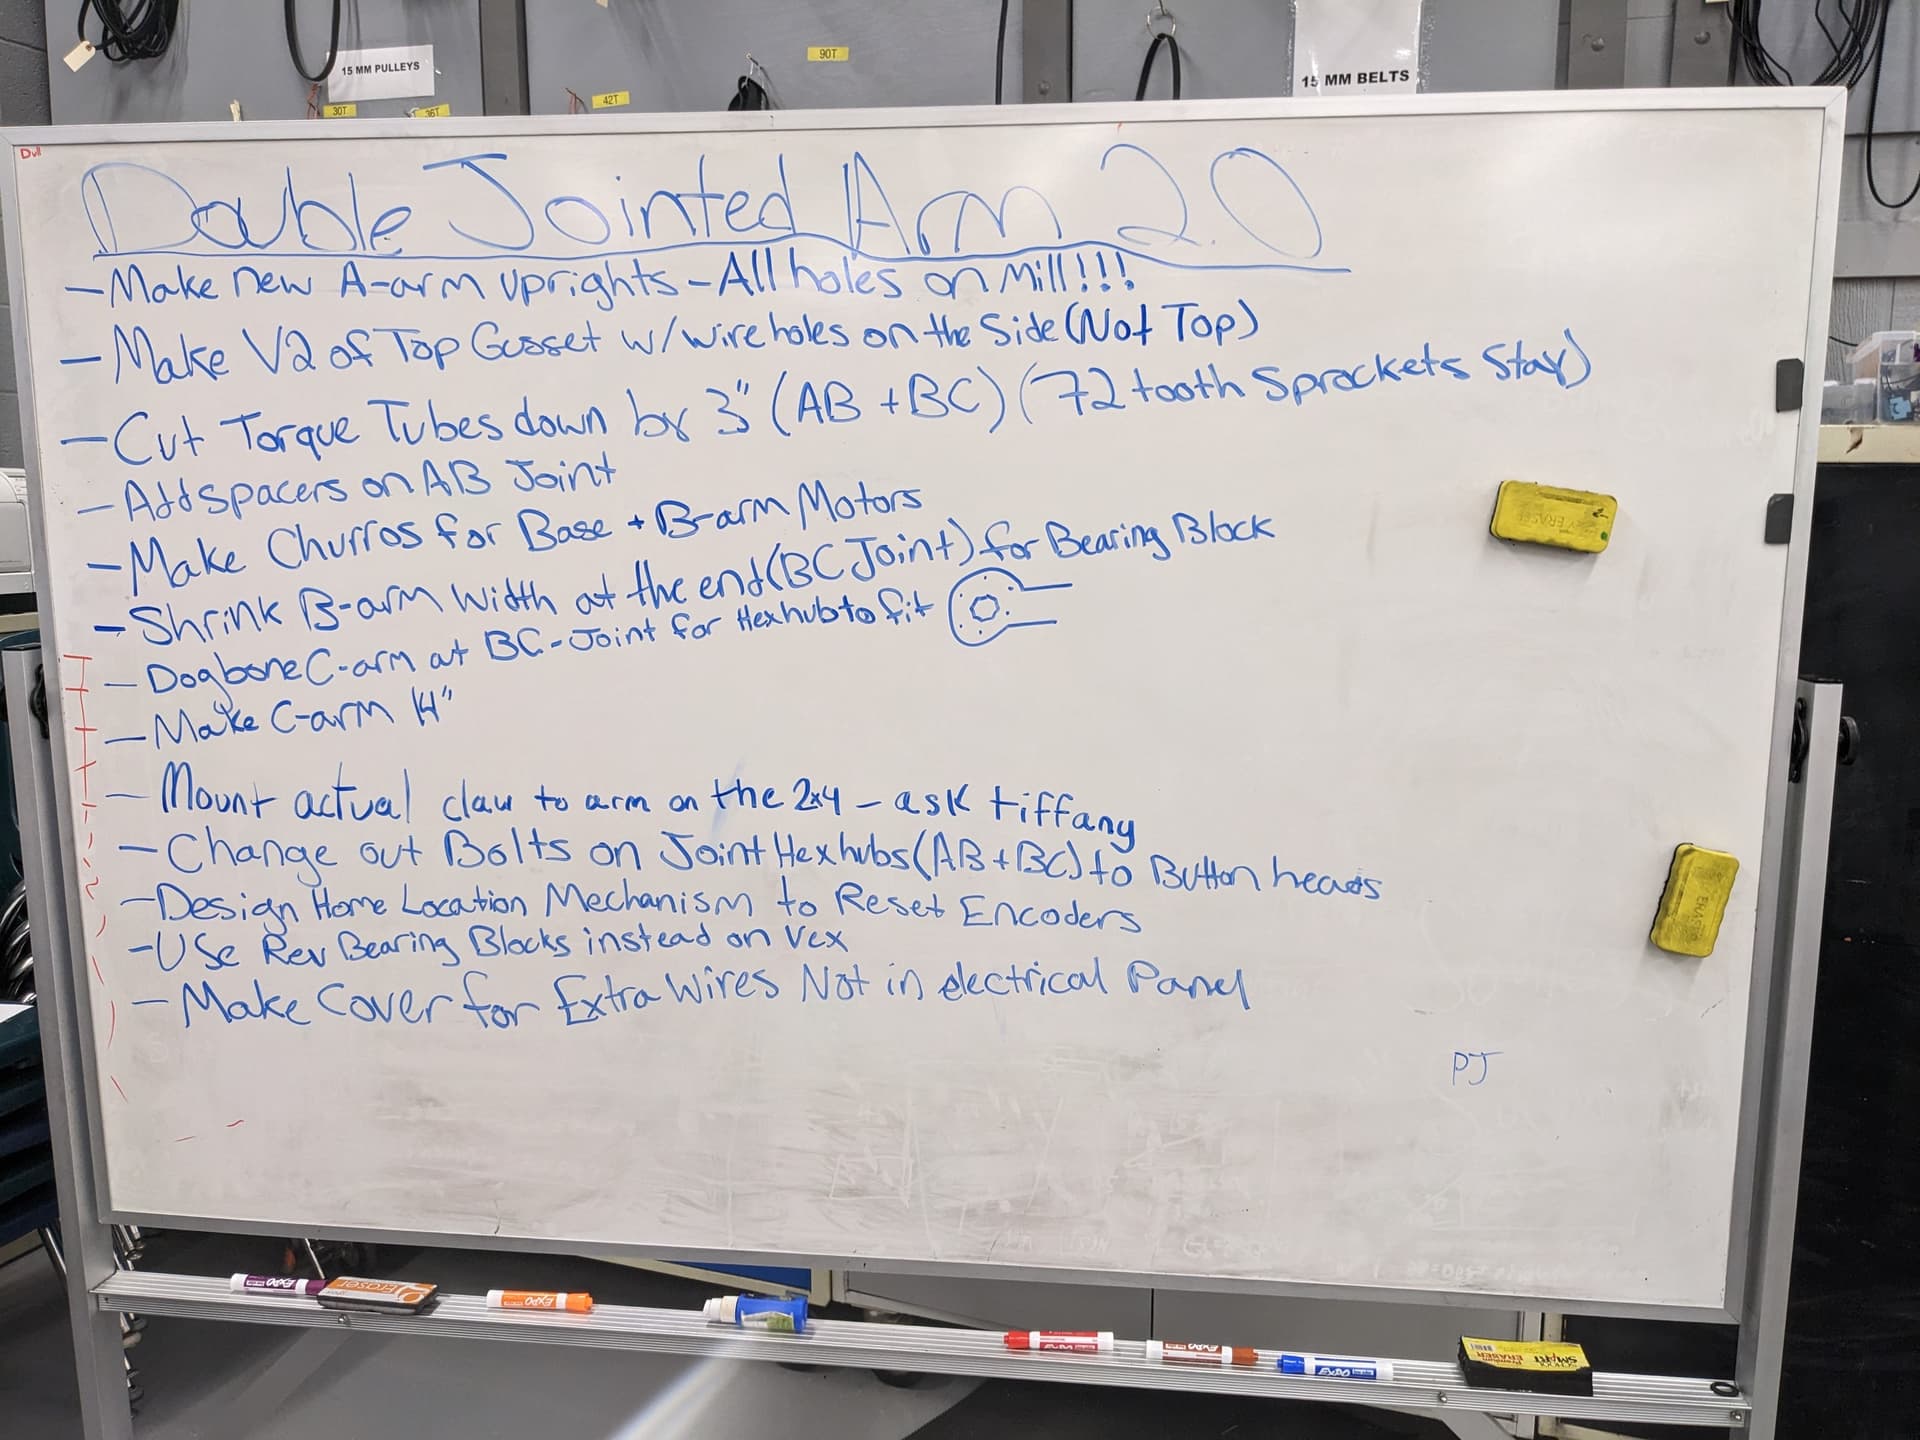 15 MM PULLEYS
90T
15 MM BELTS
30T
36T
42T
Dull
Double Jointed Arm 2.0
- Make new A-arm uprights - All holes on Mill!!!
- Make V2 of Top Gusset w/ wire holes on the Side (Not Top)
- Cut Torque Tubes down by 3" (AB + BC) (72 tooth Sprockets Stay)
- Add spacers on AB Joint
- Make Churros for Base + B-arm Motors
- Shrink B-arm Width at the end (BC Joint) for Bearing Block
- Dogbone C-arm at BC-Joint for Hexhub to fit
- Make C-arm 14"
- Mount actual claw to arm on the 2x4 - ask tiffany
- Change out Bolts on Joint Hexhubs (AB + BC) to Button heads
- Design Home Location Mechanism to Reset Encoders
- Use Rev Bearing Blocks instead on Vex
- Make Cover for Extra Wires Not in electrical Panel
PJ
ERASER
ERASER
EXPO
Eraser
EXPO
EXPO
EXPO
EXPO
SMART
Premium
ERASER